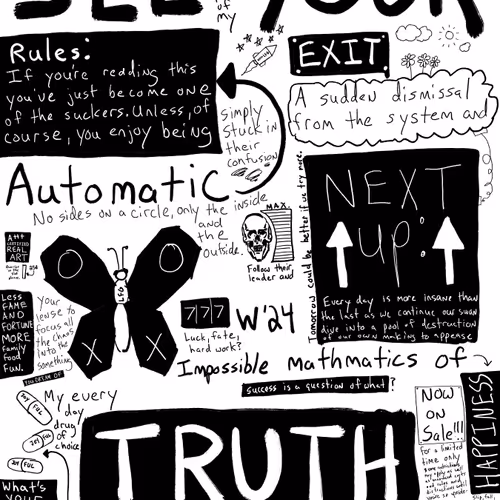 SEE YOUR
of
my
Rules:
If you're reading this
you've just become one
of the suckers. Unless, of
course, you enjoy being
EXIT
A sudden dismissal
from the system and
simply
stuck in
their
confusion
Automatic
No sides on a circle, only the inside
and
the
outside.
MAX.
Follow their
leader and
Tomorrow could be better if us try more.
NEXT
up:
Every day is more insane than
the last as we continue our swan
dive into a pool of destruction
of our own making to appease
A++
CERTIFIED
REAL
ART
LESS
FAME
AND
FORTUNE
MORE
Family
Food
FUN.
Your
lense to
focus all
the chaos
the life
into
something
LSO
O O
X X
7 7 7
Luck, fate,
hard work?
W'24
Impossible mathmatics of
success is a question of what?
YOU DREAM OF
My every
day
drug of
choice
JOY FUL
JOY FUL
JOY FUL
What's
YOUR
TRUTH
NOW
ON
Sale!!!
For a limited
time only
HAPPINESS